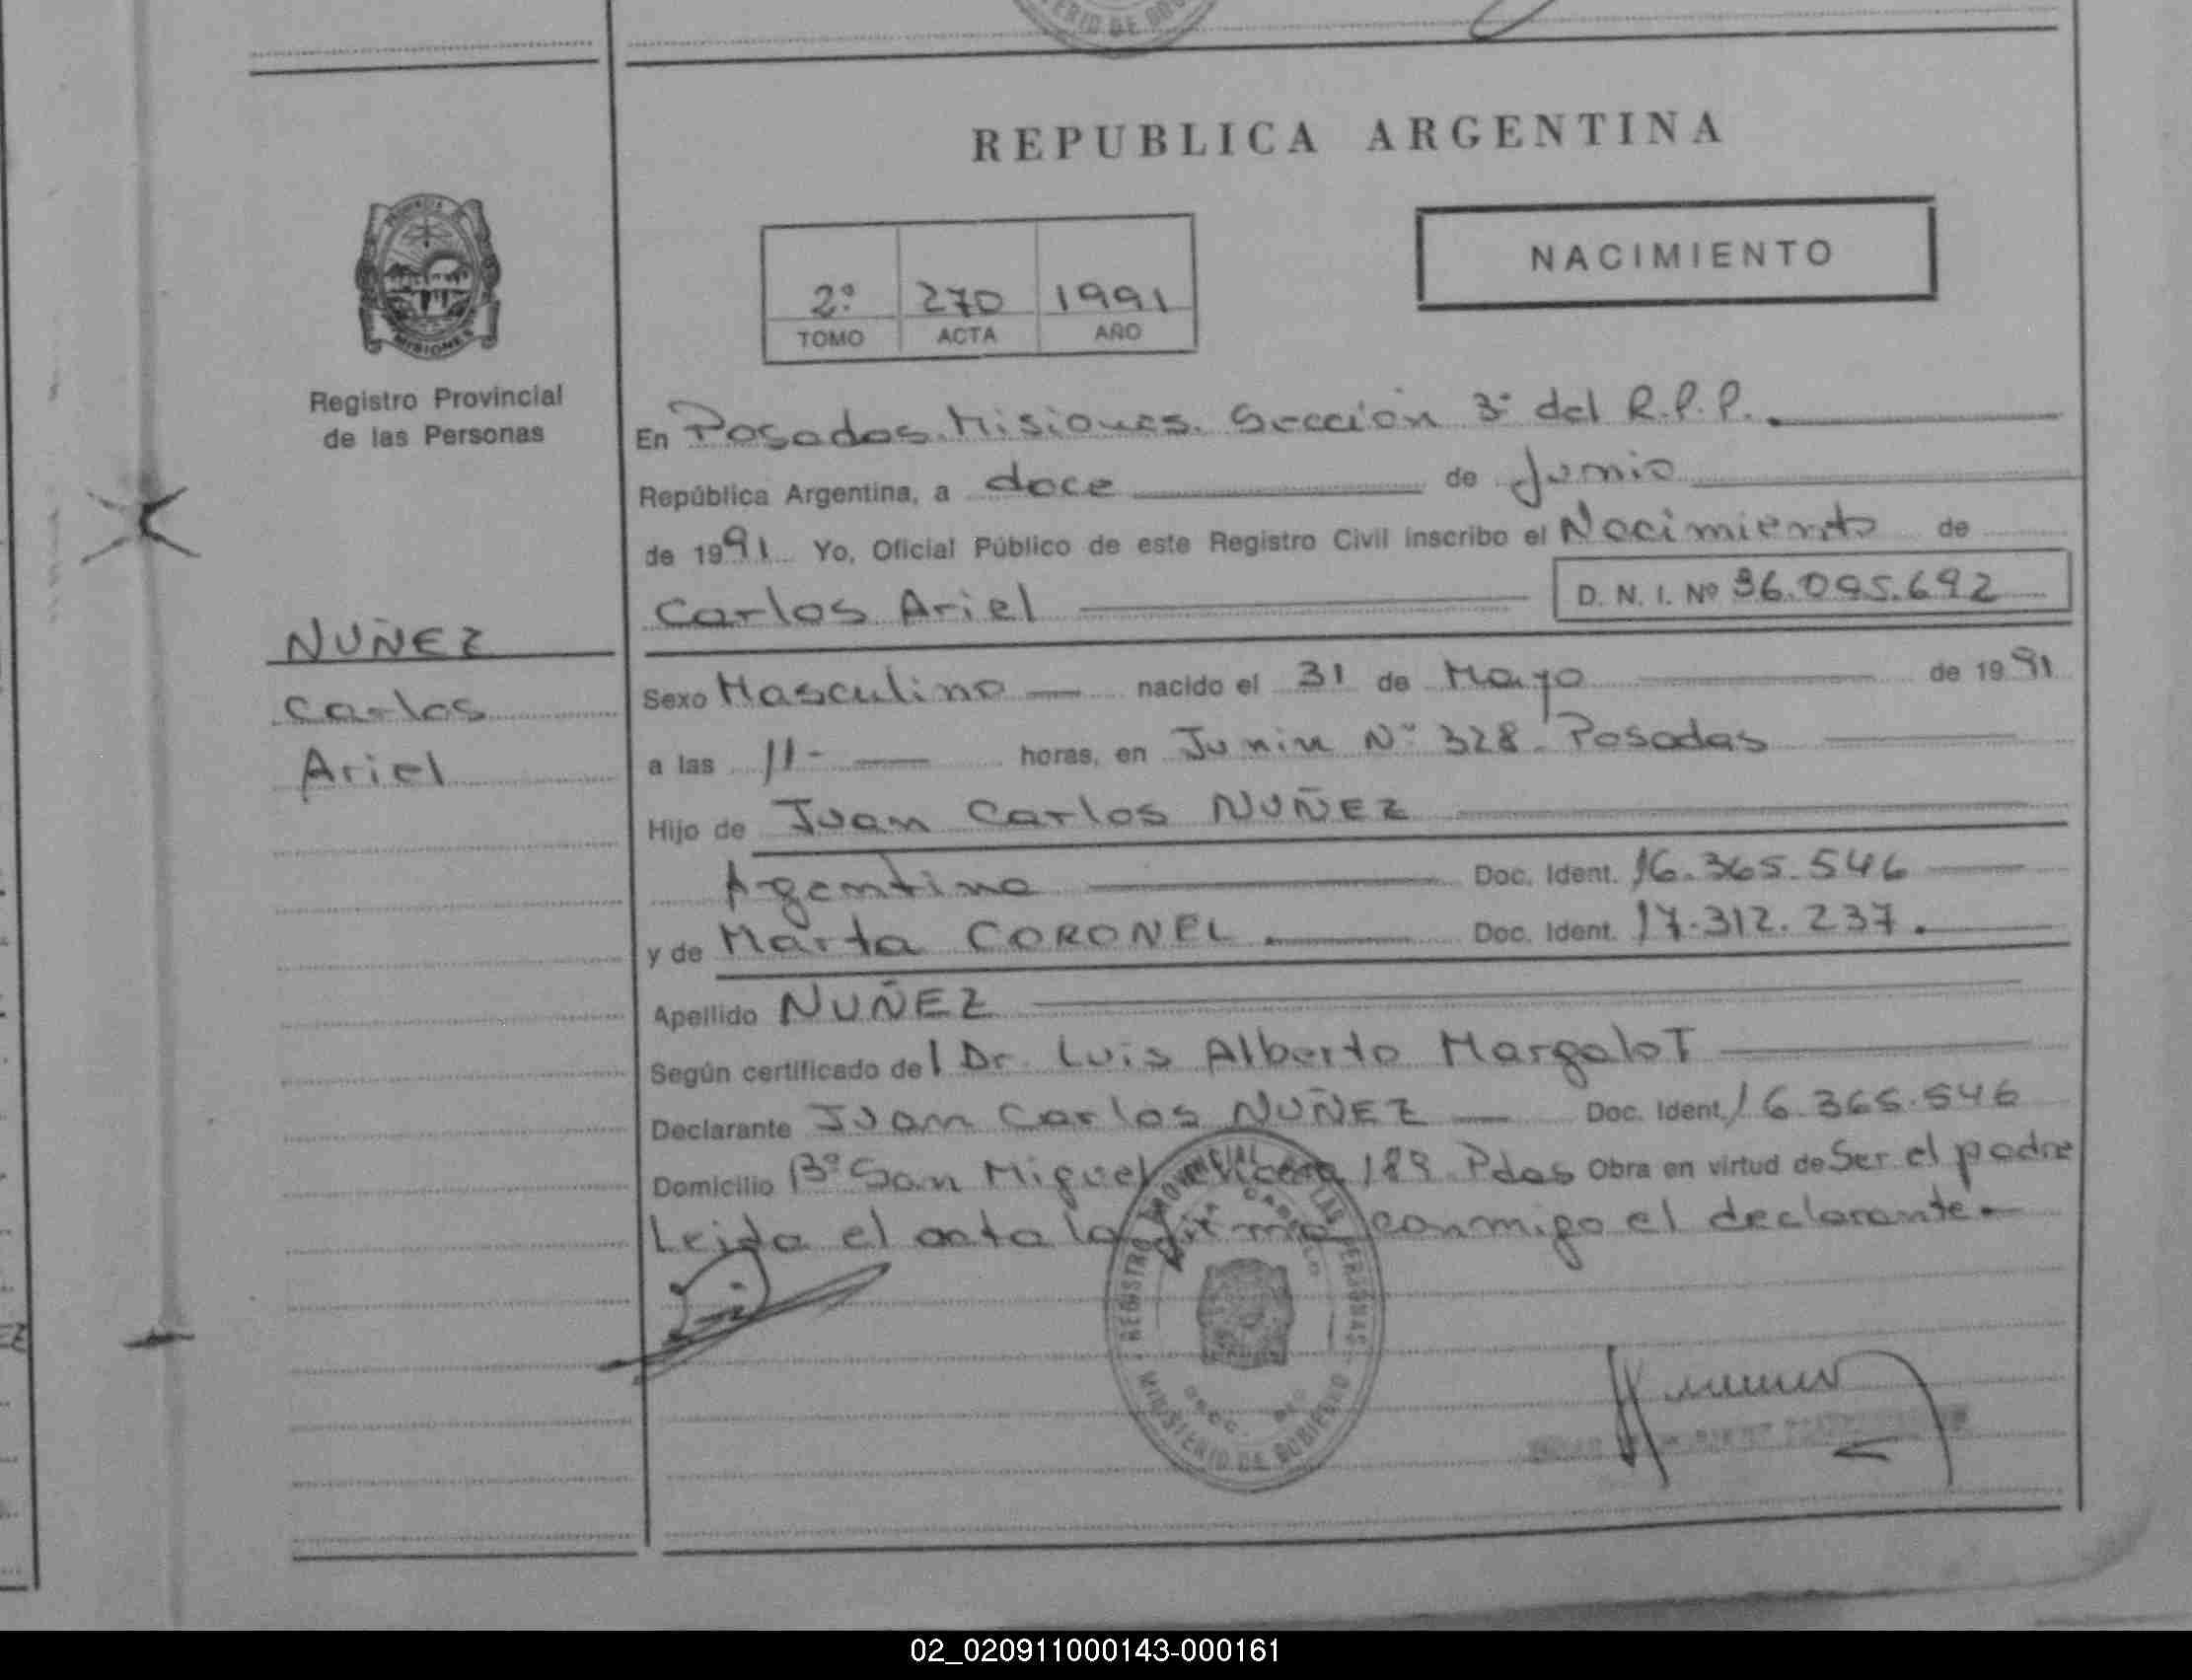 REPUBLICA ARGENTINA
NACIMIENTO
2º 270 1991
TOMO ACTA AÑO
PROVINCIA DE
MISIONES
Registro Provincial
de las Personas
NUÑEZ
Carlos
Ariel
En Posadas. Misiones. Sección 3ª del R.P.P.
República Argentina, a doce de Junio
de 1991 Yo, Oficial Público de este Registro Civil inscribo el Nacimiento de
Carlos Ariel D. N. I. Nº 36.095.692
Sexo Masculino nacido el 31 de Mayo de 1991
a las 11- horas, en Junin Nº 328. Posadas
Hijo de Juan Carlos NUÑEZ
Argentino Doc. Ident. 16.365.546
y de Marta CORONEL Doc. Ident. 17.312.237.
Apellido NUÑEZ
Según certificado del Dr. Luis Alberto MargaloT
Declarante Juan Carlos NUÑEZ Doc. Ident. 16.365.546
Domicilio Bº San Miguel 189 Pdas Obra en virtud de Ser el padre
Leida el acta la firma conmigo el declarante.
REGISTRO PROVINCIAL DE LAS PERSONAS
MINISTERIO DE GOBIERNO
02_020911000143-000161